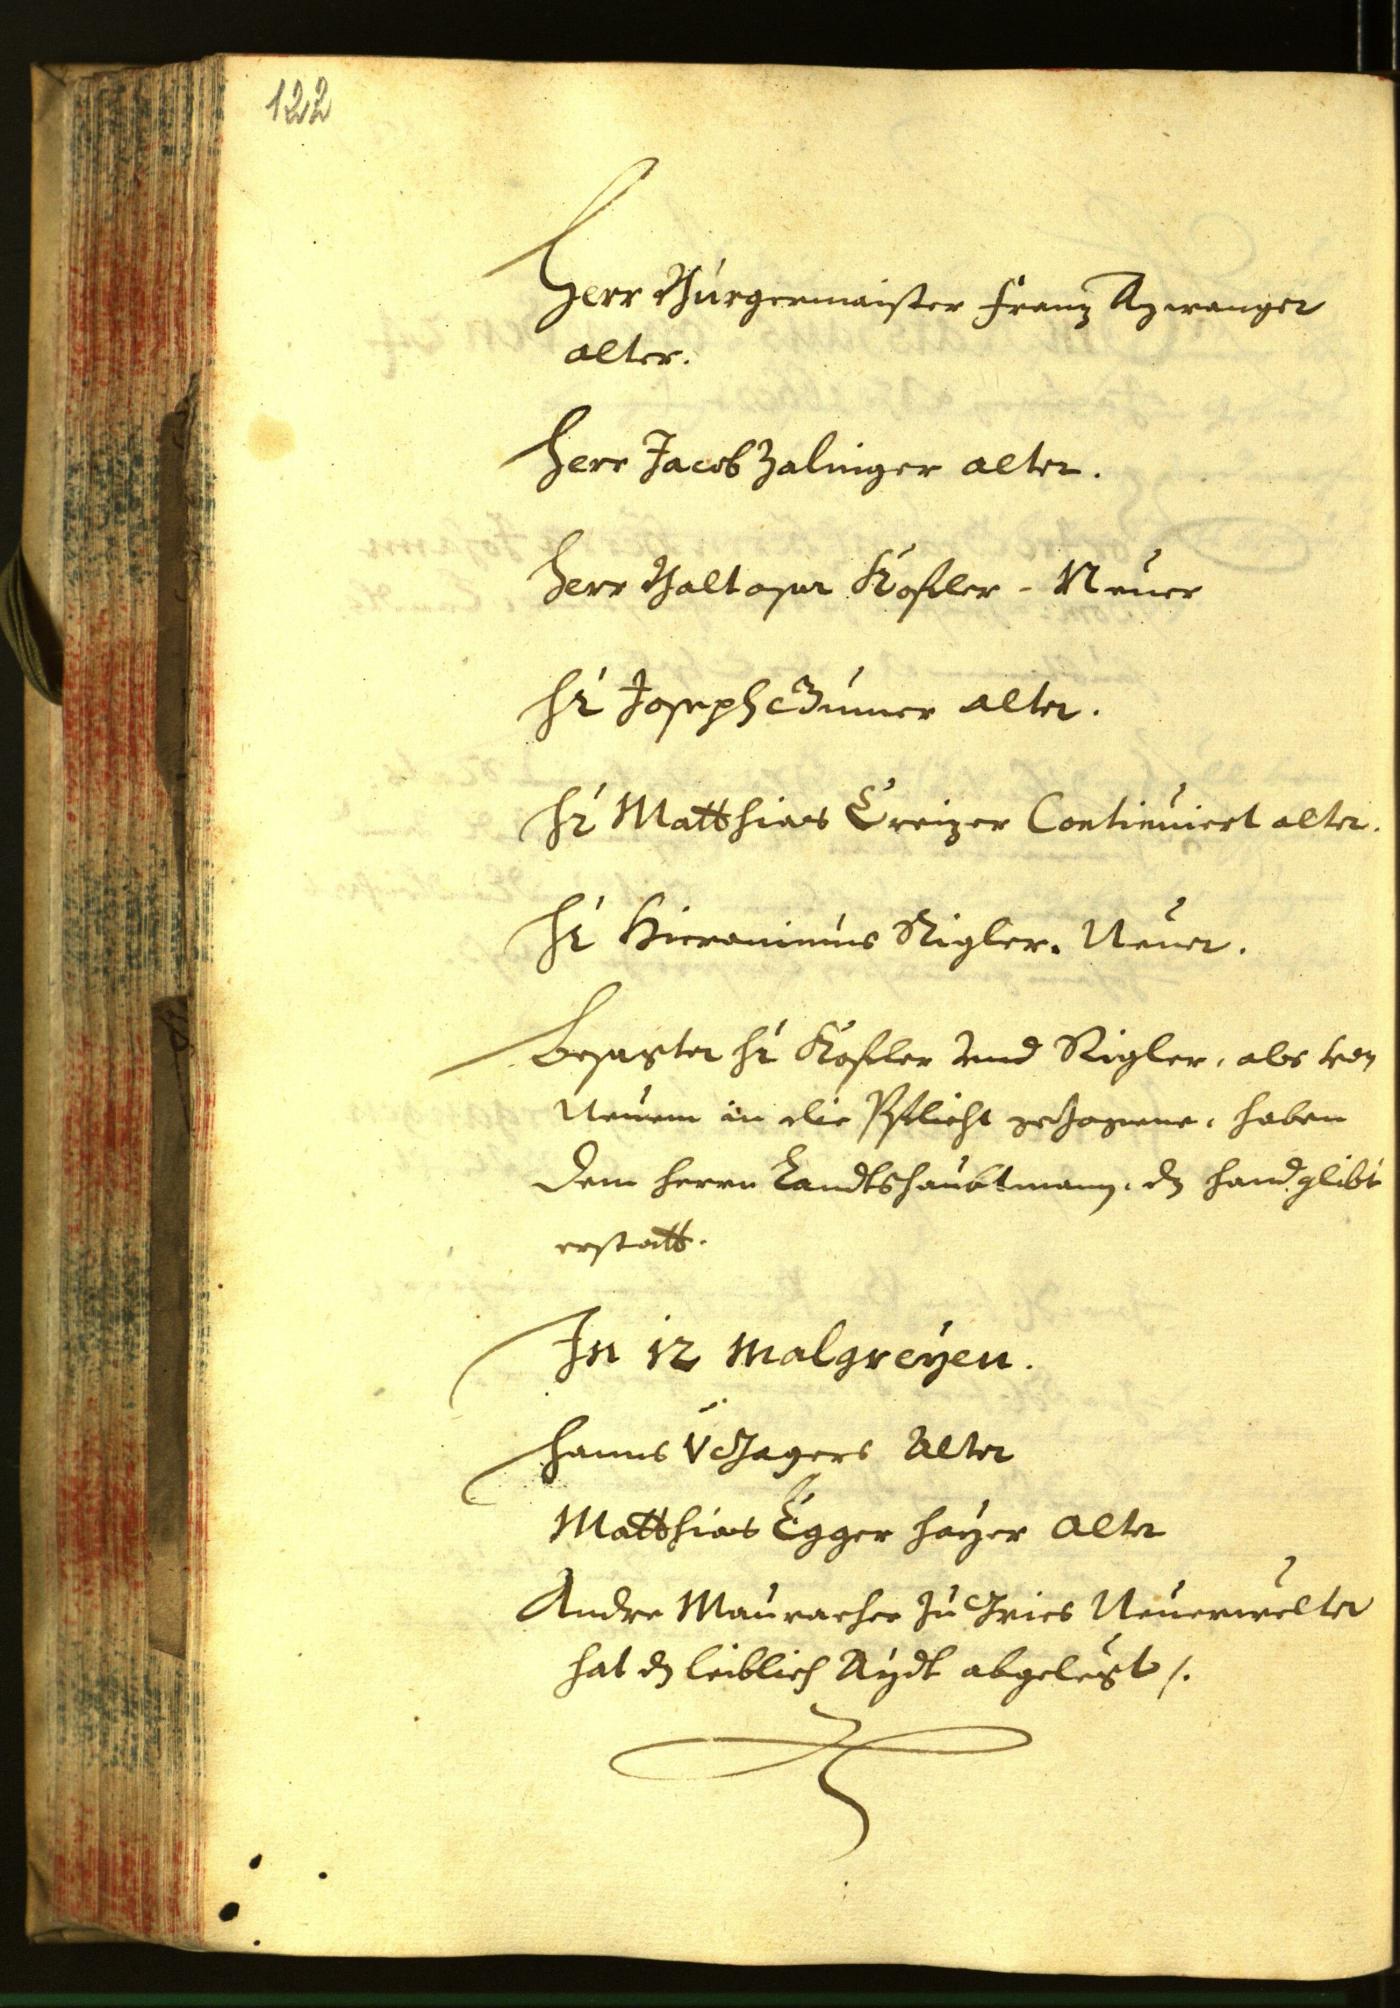 122
Herr Bürgermaister Franz Azwanger
alter.
Herr Jacob Zalinger alter.
Herr Balthasar Kofler - Neuer
Hr Joseph Gumer alter.
Hr Matthias Creizer Continuiert alter.
Hr Hieronimus Rigler. Neuer.
Besagter Hr Kofler vnd Rigler, als von
Neuem in die Pflicht gezogene, haben
dem herrn Landtshaubtmann, dz handglibt
erstatt.
In 12 Malgreÿen.
Hanns Jagers Alter
Matthias Egger Alter
Andre Mauracher zu Gries Neuerwelter
hat dz leiblich Aÿdt abgelegt /.